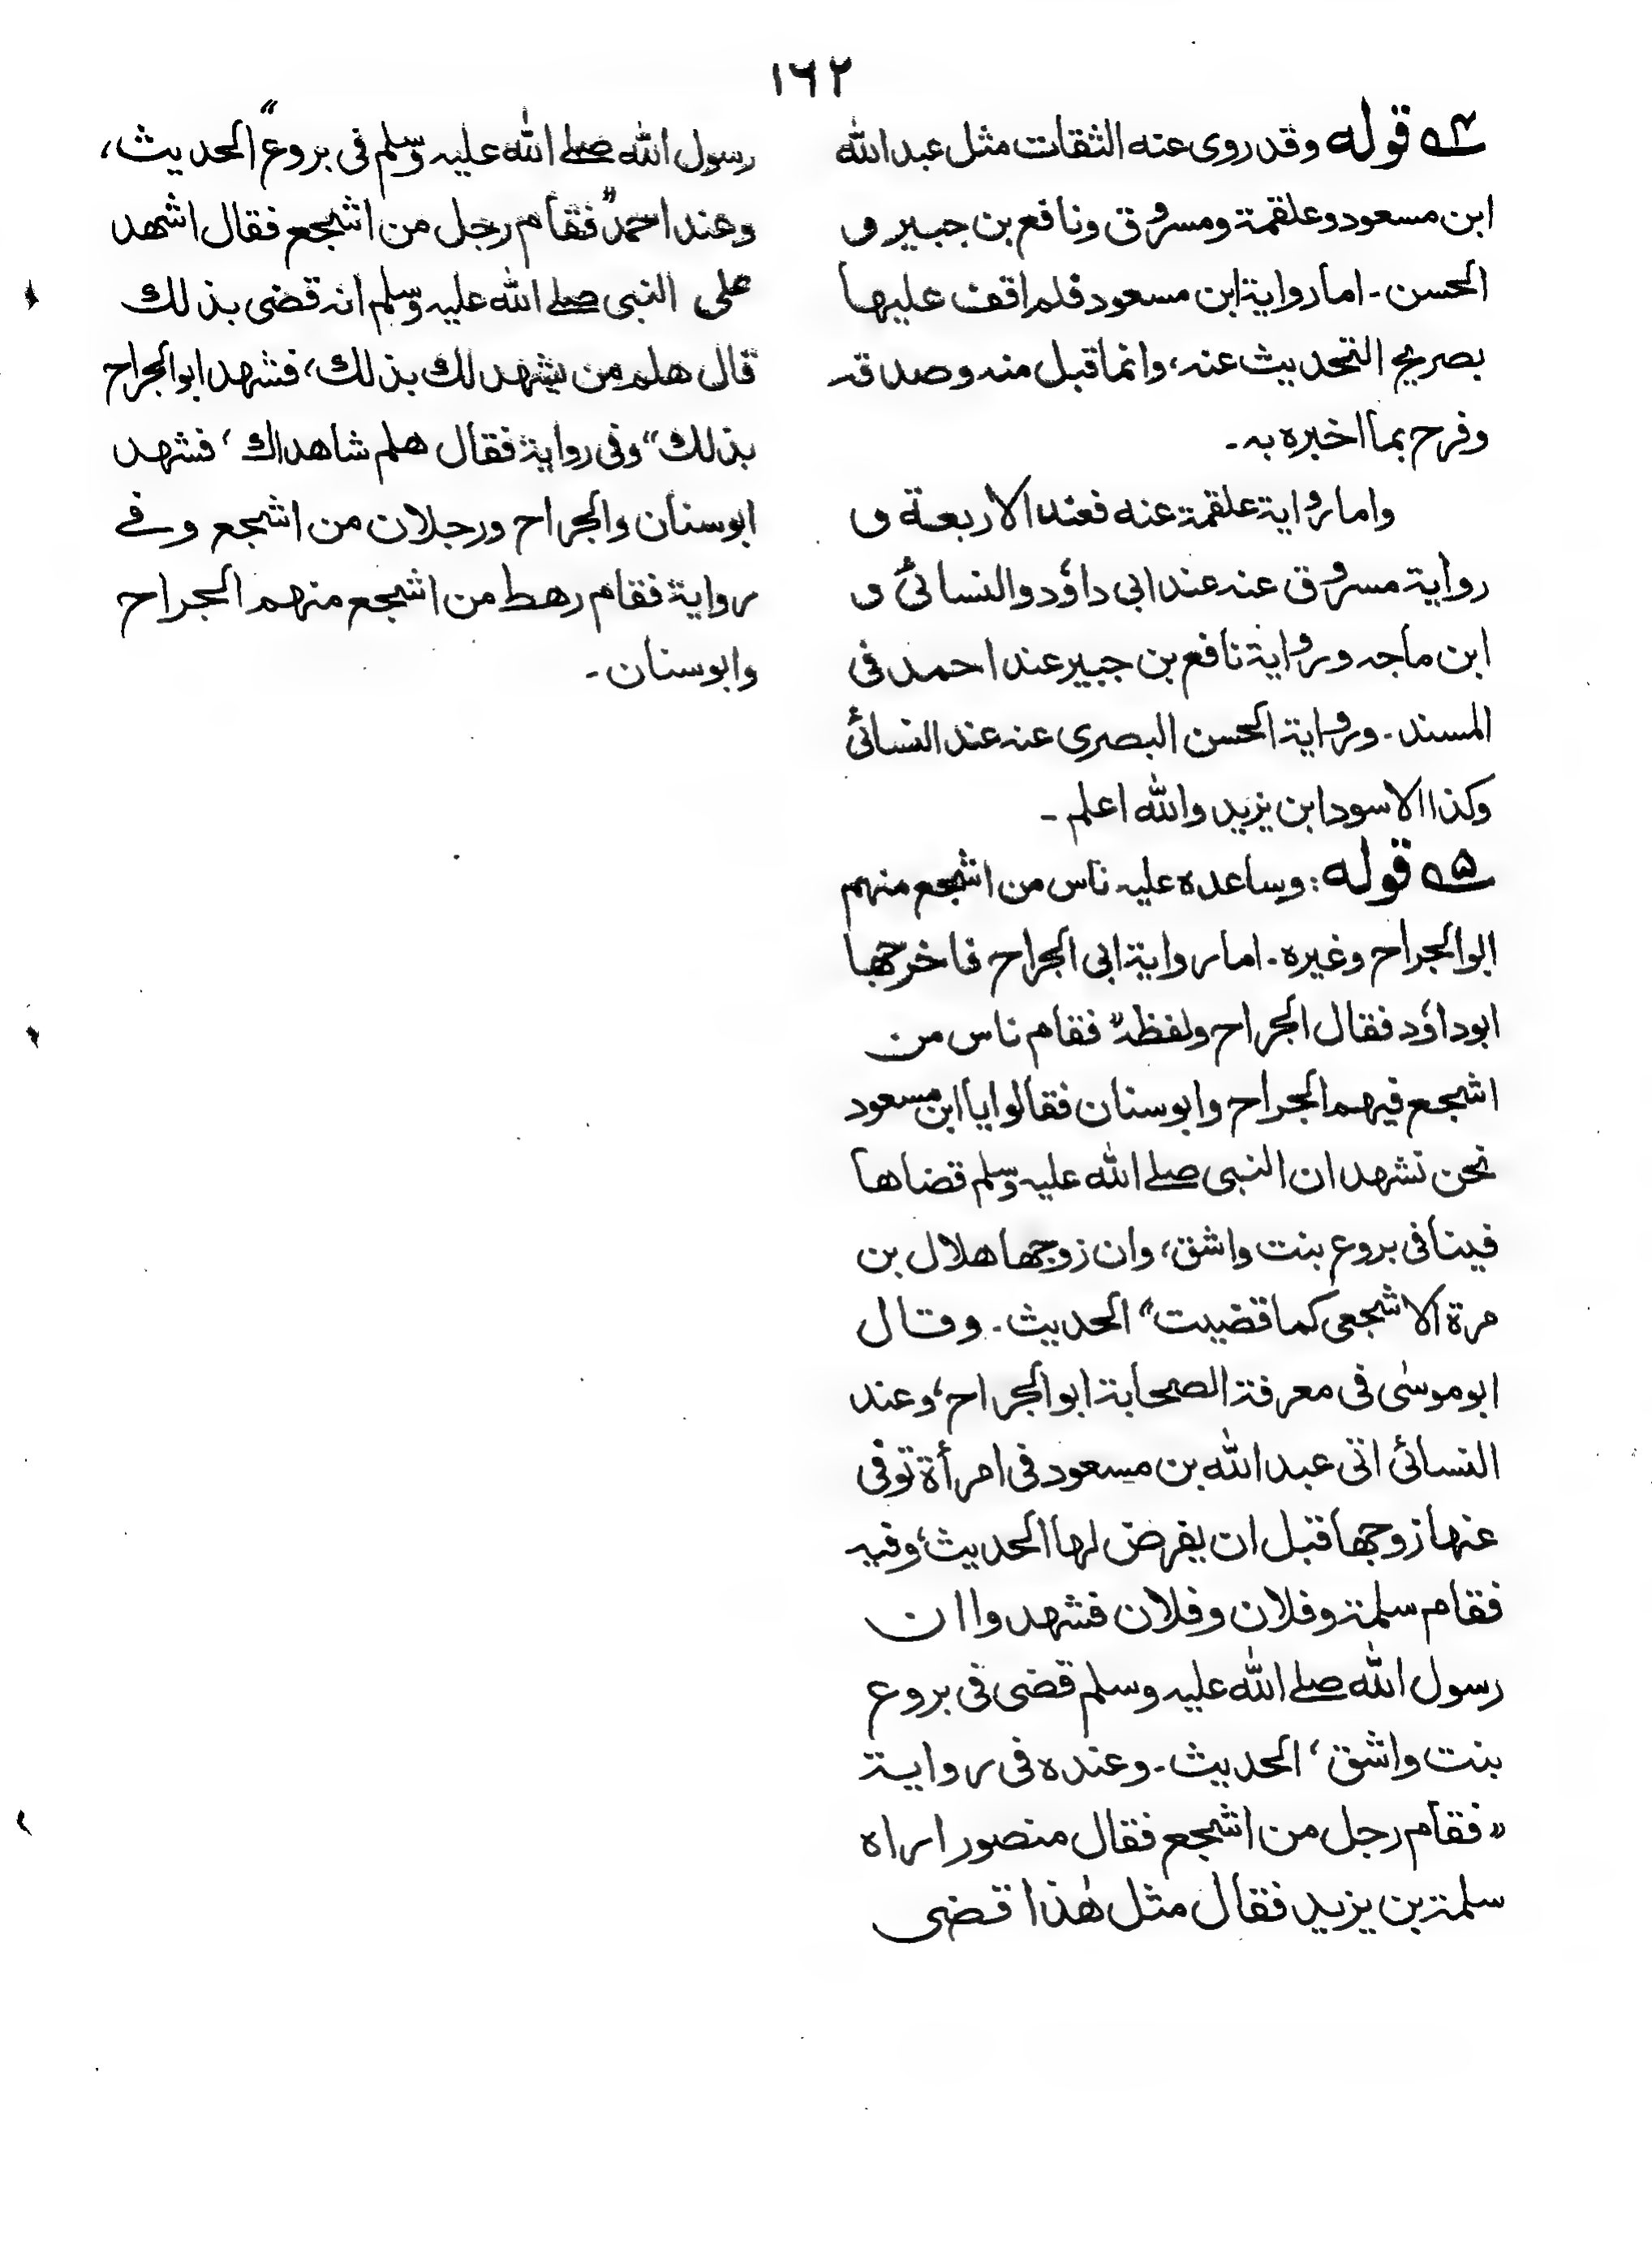 ١٦٢
٤ـه قوله وقد روى عنه الثقات مثل عبد الله
ابن مسعود وعلقمة ومسروق ونافع بن جبير و
الحسن ۔ اما رواية ابن مسعود فلم اقف عليها
بصريح التحديث عنه، وانما قبل منه وصدقه
وفرح بما اخبره به ۔
واما رواية علقمة عنه فعند الاربعة و
رواية مسروق عنه عند ابى داؤد والنسائى و
ابن ماجه ورواية نافع بن جبير عند احمد فى
المسند ۔ ورواية الحسن البصرى عنه عند النسائى
وكذا الاسود ابن يزيد والله اعلم ۔
۵ـه قوله: وساعده عليه ناس من اشجع منهم
ابو الجراح وغيره ۔ اما رواية ابى الجراح فاخرجها
ابو داؤد فقال الجراح ولفظه ”فقام ناس من
اشجع فيهم الجراح وابو سنان فقالوا يا ابن مسعود
نحن نشهد ان النبى صلے الله عليه وسلم قضاها
فينا فى بروع بنت واشق، وان زوجها هلال بن
مرة الاشجعى كما قضيت“ الحديث ۔ وقال
ابو موسٰى فى معرفة الصحابة ابو الجراح، وعند
النسائى اتى عبد الله بن مسعود فى امرأة توفى
عنها زوجها قبل ان يفرض لها الحديث، وفيه
فقام سلمة وفلان وفلان فشهدوا ان
رسول الله صلے الله عليه وسلم قضى فى بروع
بنت واشق، الحديث ۔ وعنده فى رواية
”فقام رجل من اشجع فقال منصور اراه
سلمة بن يزيد فقال مثل هٰذا قضى
رسول الله صلے الله عليه وسلم فى بروع“ الحديث،
وعند احمد ”فقام رجل من اشجع فقال اشهد
على النبى صلے الله عليه وسلم انه قضى بذلك
قال هلم من يشهد لك بذلك، فشهد ابو الجراح
بذلك“ وفى رواية فقال هلم شاهداك، فشهد
ابو سنان والجراح ورجلان من اشجع وفے
رواية فقام رهط من اشجع منهم الجراح
وابو سنان ۔